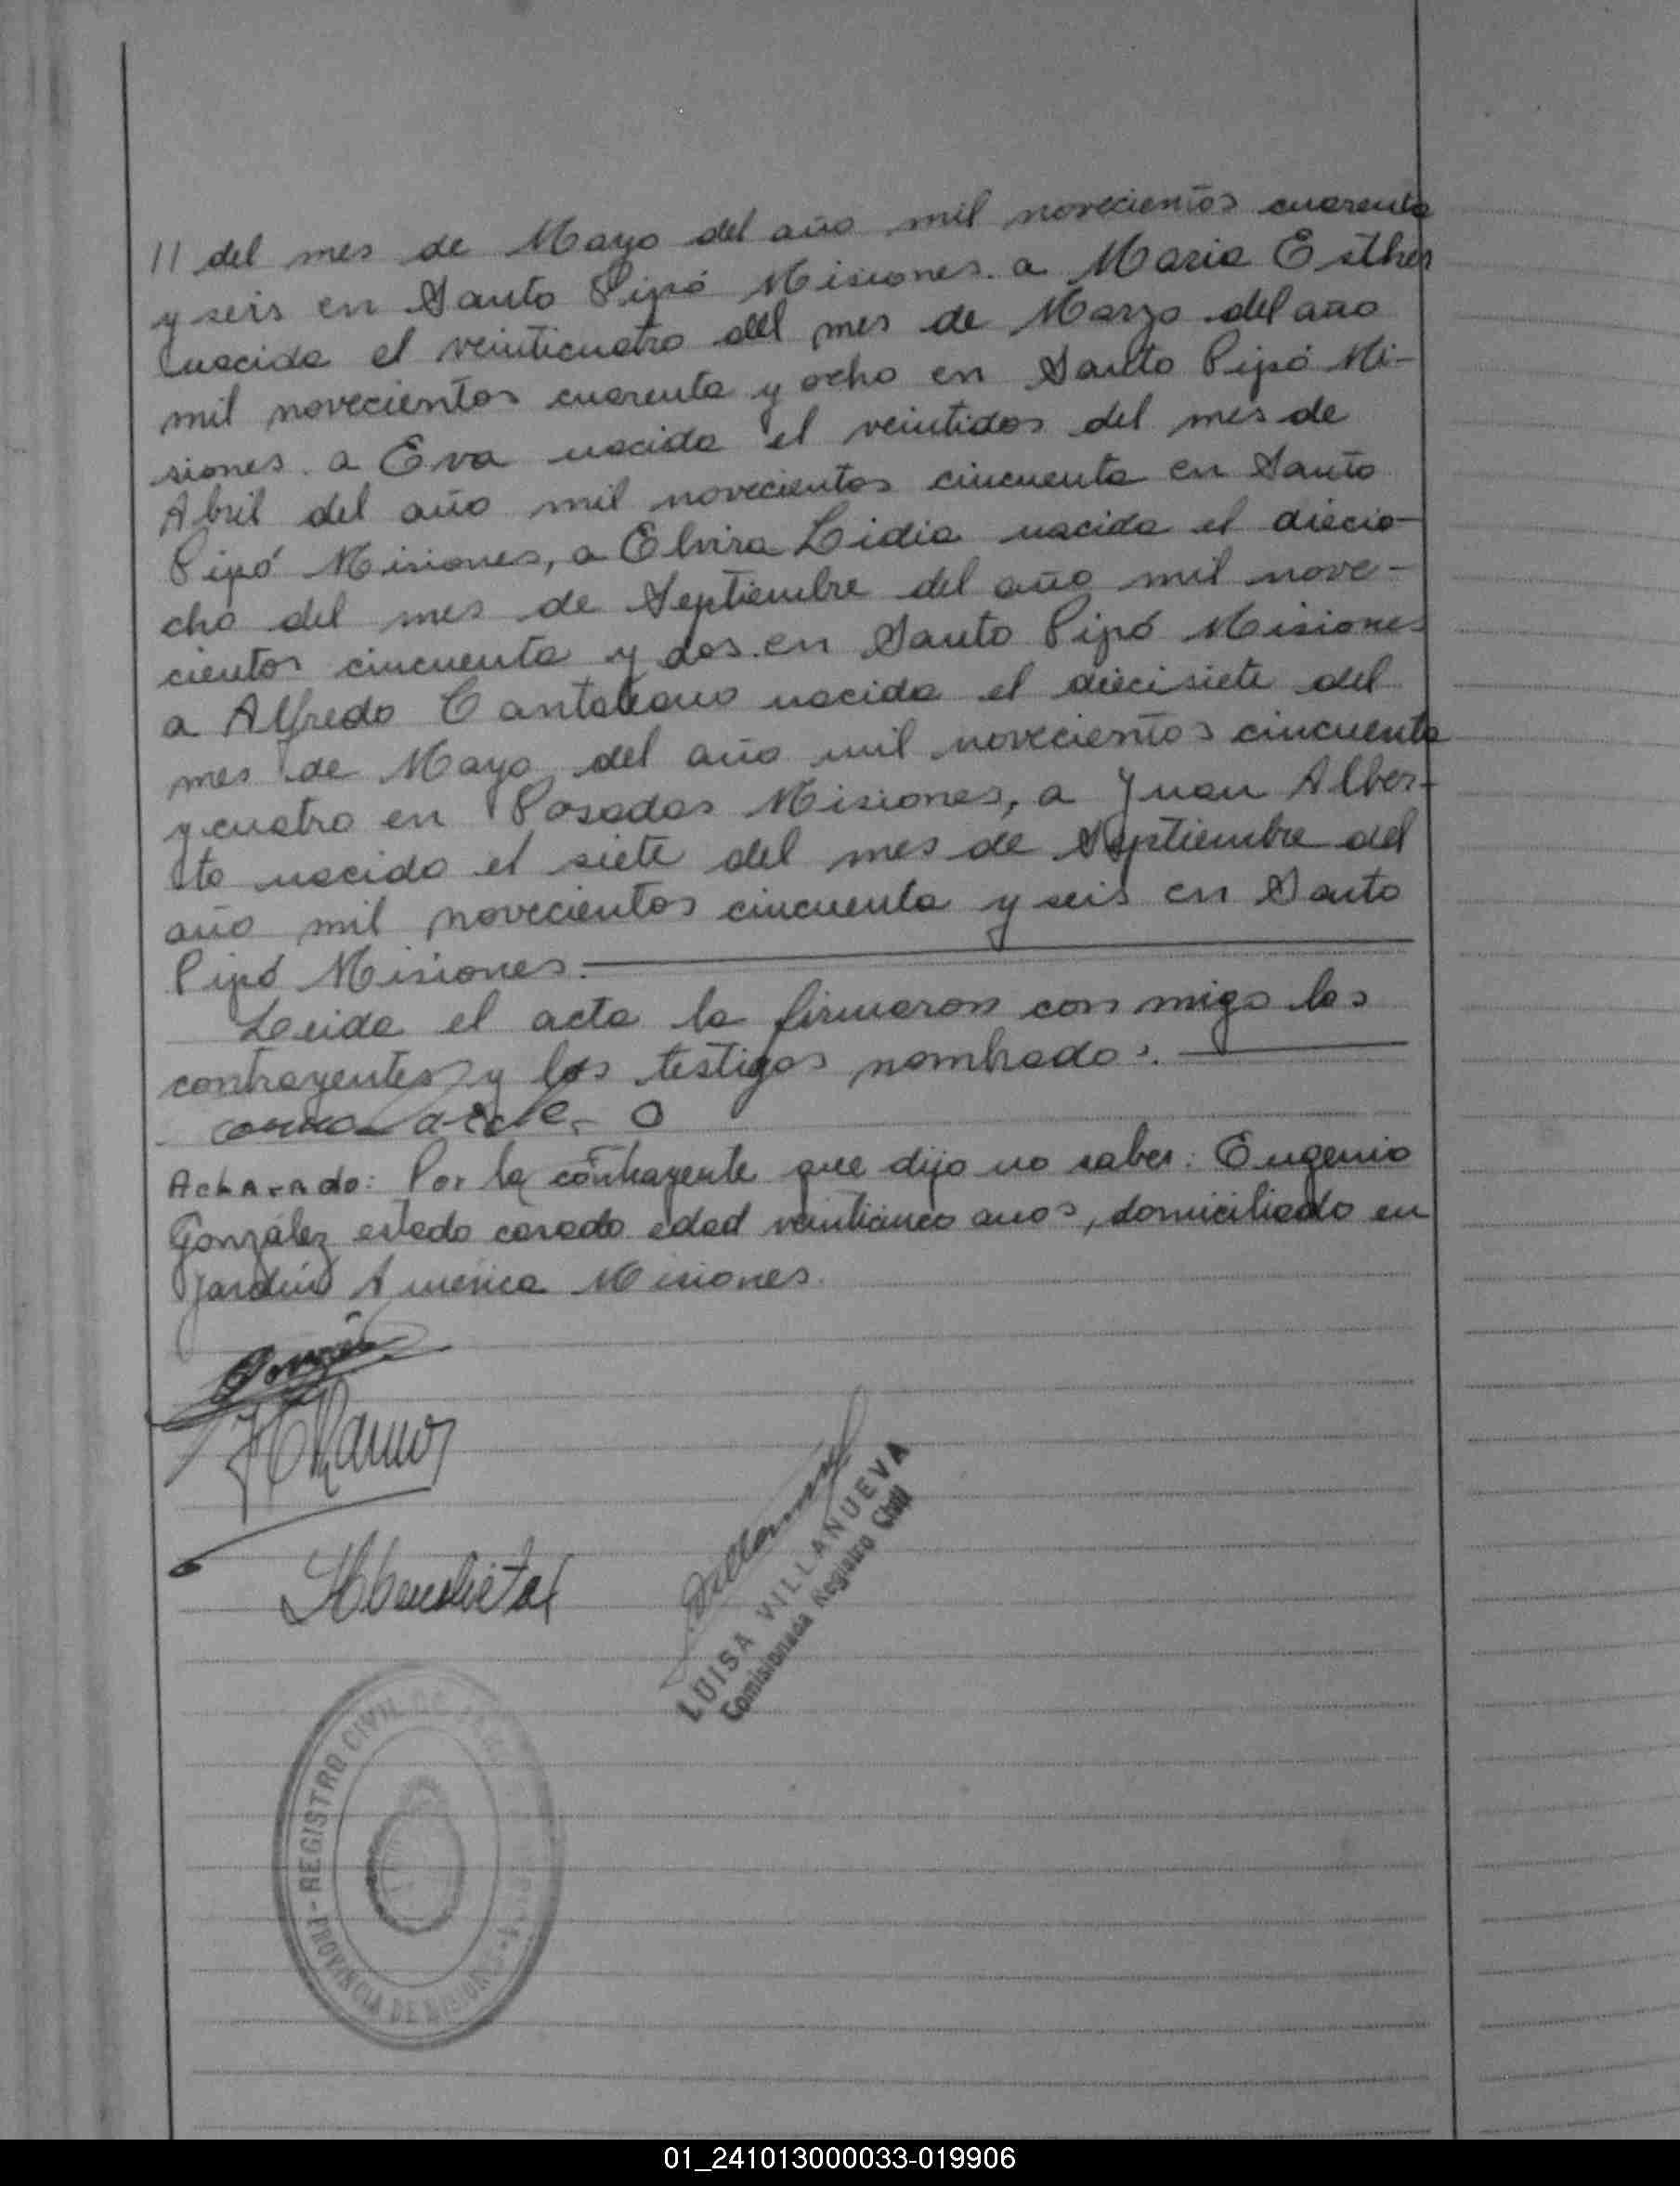 // del mes de Mayo del año mil novecientos cuarenta
y seis en Santo Pipó Misiones. a Maria Esther
nacida el veinticuatro del mes de Marzo del año
mil novecientos cuarenta y ocho en Santo Pipó Mi-
siones. a Eva nacida el veintidos del mes de
Abril del año mil novecientos cincuenta en Santo
Pipó Misiones, a Elvira Lidia nacida el diecio-
cho del mes de Septiembre del año mil nove-
cientos cincuenta y dos en Santo Pipó Misiones
a Alfredo nacido el diecisiete del
mes de Mayo del año mil novecientos cincuenta
y cuatro en Posadas Misiones, a Juan Alber-
to nacido el siete del mes de Septiembre del
año mil novecientos cincuenta y seis en Santo
Pipó Misiones.
Leida el acta la firmaron con migo los
contrayentes y los testigos nombrados.
Aclarado: Por la contrayente que dijo no saber: Eugenio
González estado casado edad veinticinco anos, domiciliado en
Jardín América Misiones.
LUISA VILLANUEVA
Comisionada Registro Civil
REGISTRO CIVIL DE
PROVINCIA DE MISIONES
01_241013000033-019906